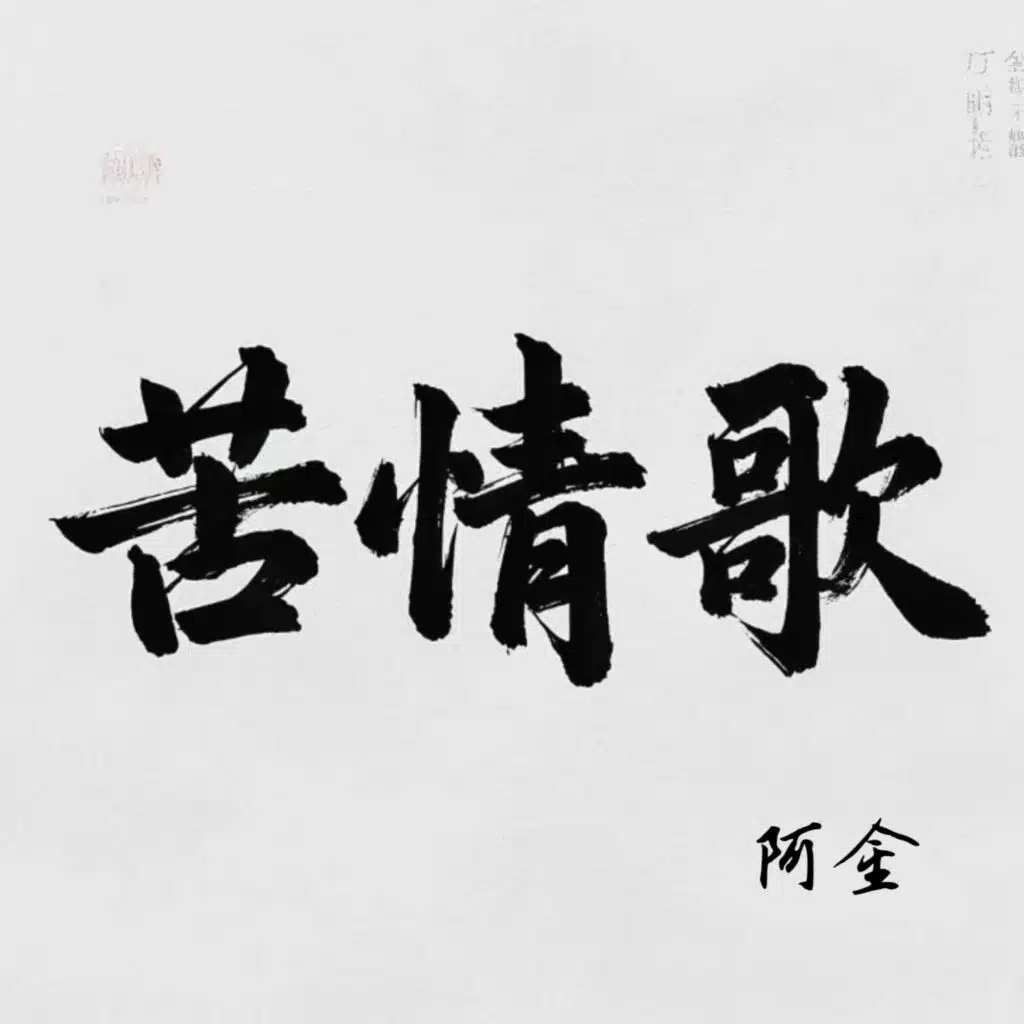 苦情歌
阿金